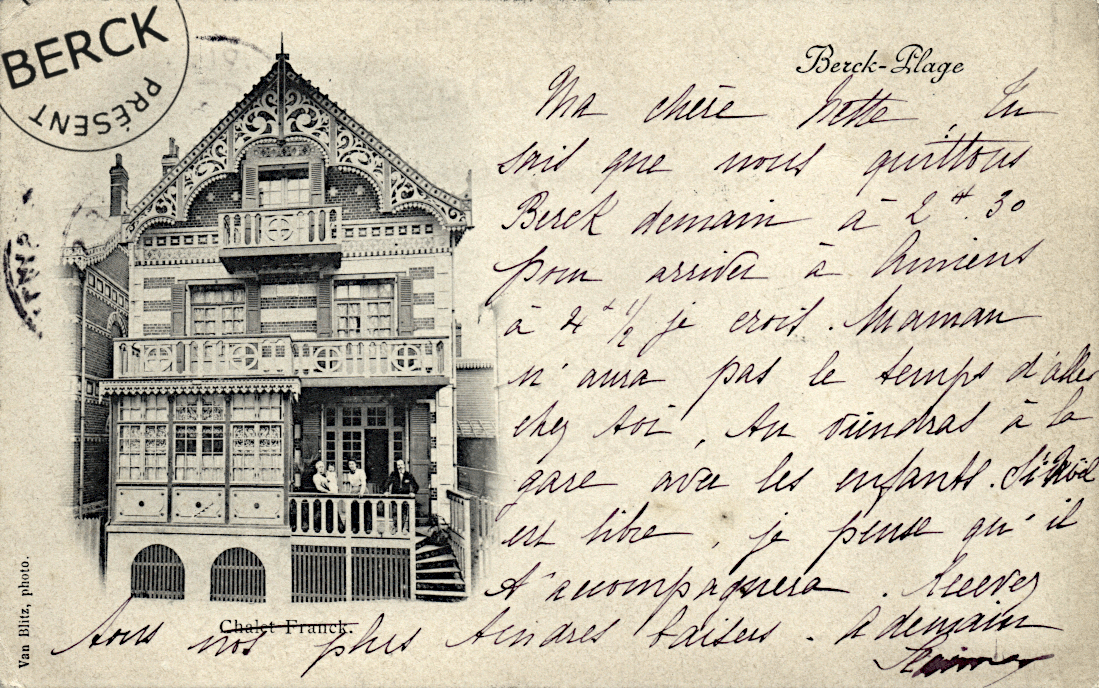 BERCK
PRÉSENT
Berck-Plage
Ma chère Nette, Tu
sais que nous quittons
Berck demain à 2 h. 30
pour arriver à Amiens
à 4 h 1/2 je crois. Maman
n'aura pas le temps d'aller
chez toi, tu viendras à la
gare avec les enfants. Si
est libre, je pense qu'il
t'accompagnera. Recevez
tous nos plus tendres baisers. A demain
Chalet Franck.
Van Blitz, photo.